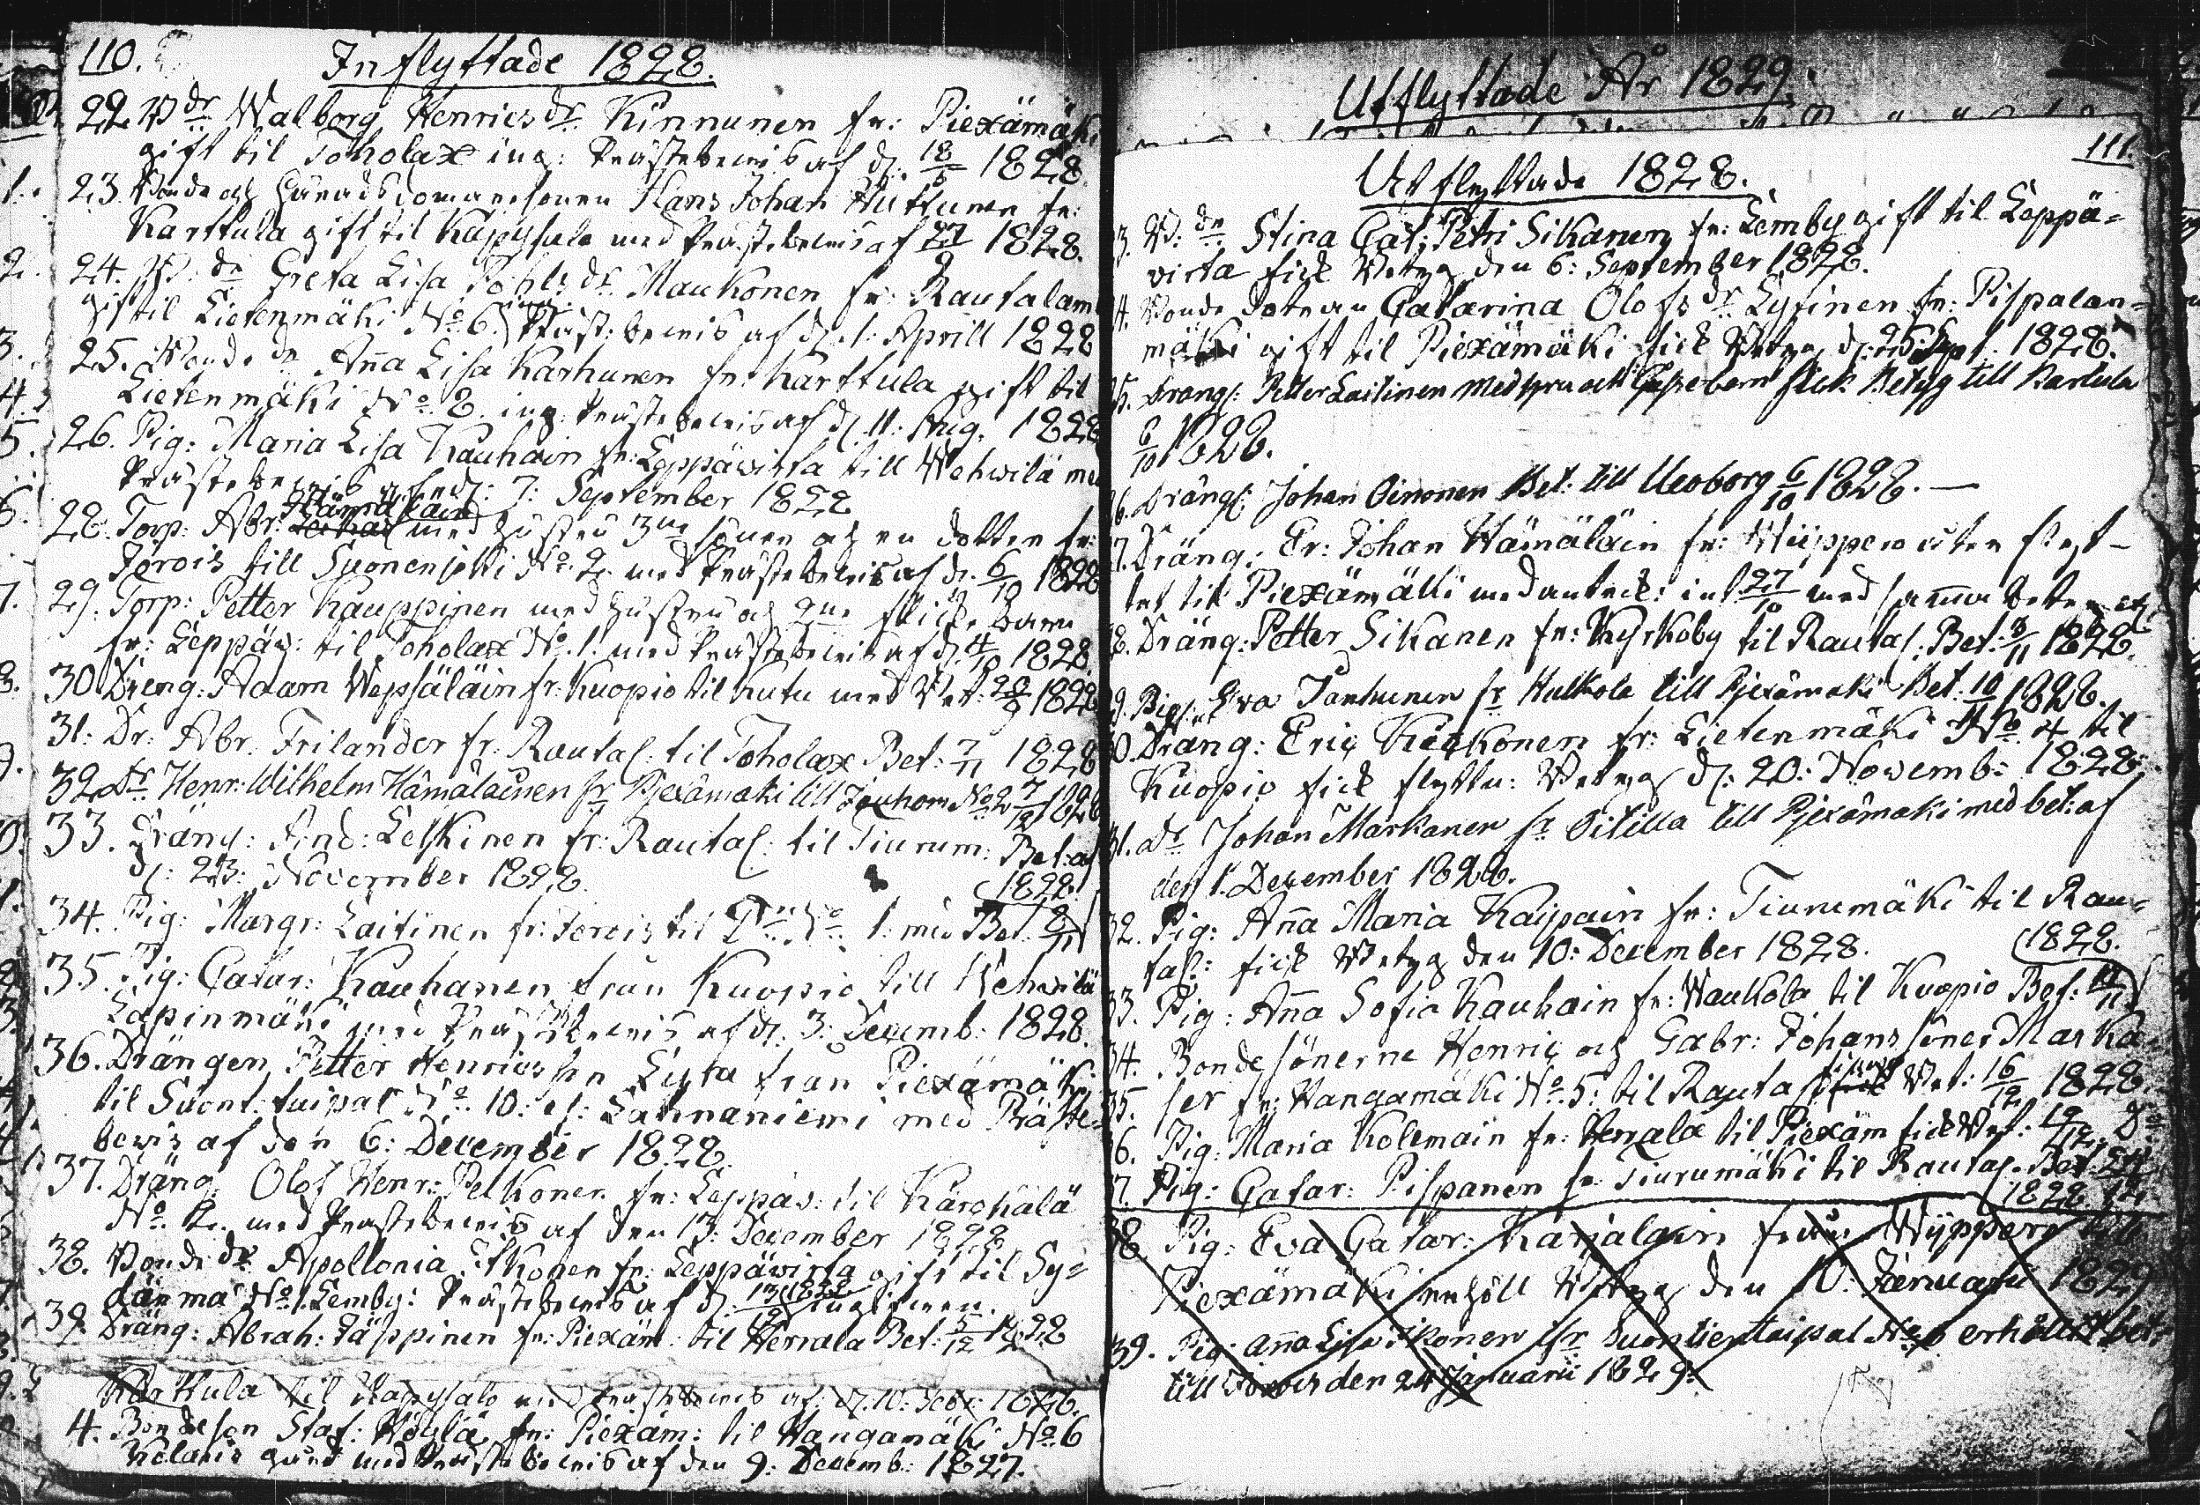 110.
Inflyttade 1828.
22. B dr Walborg Henrics dr Kinnunen fr: Piexämäki
gift til Toholax ing: Prästebevis af d: 18/5 1828.
23. Bonde och Häradsdomaresonen Hans Johan Huttunen fr:
Karttula gift til Kapysalo med Prästebevis af 27/9 1828.
24. B: dr Greta Lisa Pohls dr Maukonen fr: Rautalam
gift til Lietenmäki No 6. Präst: bevis af d. 1. Aprill 1828
25. Bonde dr Anna Lisa Karhunen fr: Karttula gift til
Lietenmäki No 2. ing: Prästebevis af d. 11: Aug. 1828
26. Pig: Maria Lisa Kauhain fr: Leppäwirta till Wehwilä med
Prästebevis af d: 7: September 1828
28. Torp: Abr: Hämäläin med hustru 3ne söner och en dotter fr:
Jorois till Suonenjoki No 2. med Prästebevis af d. 6/10 1828
29. Torp: Petter Kauppinen med hustru och 2ne flick. barn
fr: Leppäw: til Toholax No 1. med Prästebevis af d. 4/10 1828
30. Dreng: Adam Wepsäläin fr: Kuopio til Kutu med Bet: 28/9 1828
31: Dr: Abr. Frilander fr: Rautal: til Toholax Bet: 7/11 1828
32. Dr Henr: Wilhelm Hämäläinen fr Pjexämäki till No 2 7/12 1828
33. Dräng: And: Leskinen fr: Rautal: til Tiurum: Bet: af
d: 23: November 1828.
34. Pig: Margr: Laitinen fr: Jorois til No 1. med Bet. 8/11 1828.
35. Pig: Catar: Kauhanen från Kuopio till Wehwilä
Lapinmäki med Prästebevis af d. 3: Decemb: 1828.
36. Drängen Petter Henricsson Lyta från Piexämäki
til Suont: taipal No 10: Lahnaniemi med Präste-
bevis af den 6: December 1828.
37. Dräng Olof Henr: Pelkonen fr: Leppäv: til Kärchälä
No 2. med Prästebevis af den 13: December 1828
38. Bonde dr Apollonia Itkonen fr: Leppäwirta gift til Sy-
dänmä No 1. Lemby: Prästebevis af d. 13/12 1828 ingifven.
39. Dräng: Abrah: Jäppinen fr: Piexäm: til Herrala Bet: 5/12 1828
til Kapysalo med Prästebevis af d. 10:
4. Bondeson Staf: fr: Piexäm: til Hangamäki No 6
Kolaris gård med Prästebevis af den 9: Decemb: 1827.
Utflyttade År 1829.
111.
Utflyttade 1828.
3. B: dr Stina Cat: Petri Sikanen fr: Lemby gift til Leppä-
virta fick Betyg den 6: September 1828.
4. Bonde dotren Catarina Olofs dr Lytinen fr: Pispalan-
mäki gift til Piexämäki fick Betyg d. 25 Sept. 1828.
5. Drängs: Petter Laitinen med hustru och barn fick Betyg till Kartula
6/10 1828.
6. Drängs: Johan Oinonen Bet: till Uleoborg 6/10 1828. —
7. Dräng: Er: Johan Hämäläin fr: utan flyt-
tet til Piexämäki med 27/10 med samma
8. Dräng: Petter Sikanen fr: Kyrkoby til Rautal: Bet: 3/11 1828.
9. Pig: Eva Janhunen fr Hulkola till Pjexämäki Bet: 10/11 1828.
0. Dräng: Eric Kärkonen fr: Lietenmäki No 4 til
Kuopio fick flyttn: Betyg d: 20: Novemb: 1828.
31. Dr Johan Markanen fr Oitilla till Pjexämäki med bet: af
den 1. December 1828.
32. Pig: Anna Maria Kaipain fr: Tiurumäki til Rau-
tal: fick Betyg den 10: December 1828.
33. Pig: Anna Sofia Kauhain fr: Waukola til Kuopio Bet: 10/11 1828.
34. Bondesönerne Henric och Gabr: Johans söner Marka-
35. ser fr: Hangamäki No 5: til Rautal: Bet: 16/12 1828.
36. Pig: Maria Kolemain fr: Herrala til Piexäm fick Bet: 19/12 Do
37. Pig: Catar: Pispanen fr Tiurumäki til Rautal. Bet: 1828
38. Pig: Eva Catar: Karjalain från Wypper till
Piexämäki erhöll Betyg den 10: Januarii 1829
39. Pig: Anna Lisa Ikonen fr Suontientaipal No 6 erhållit bet:
till Jorois den 24 Januarii 1829.